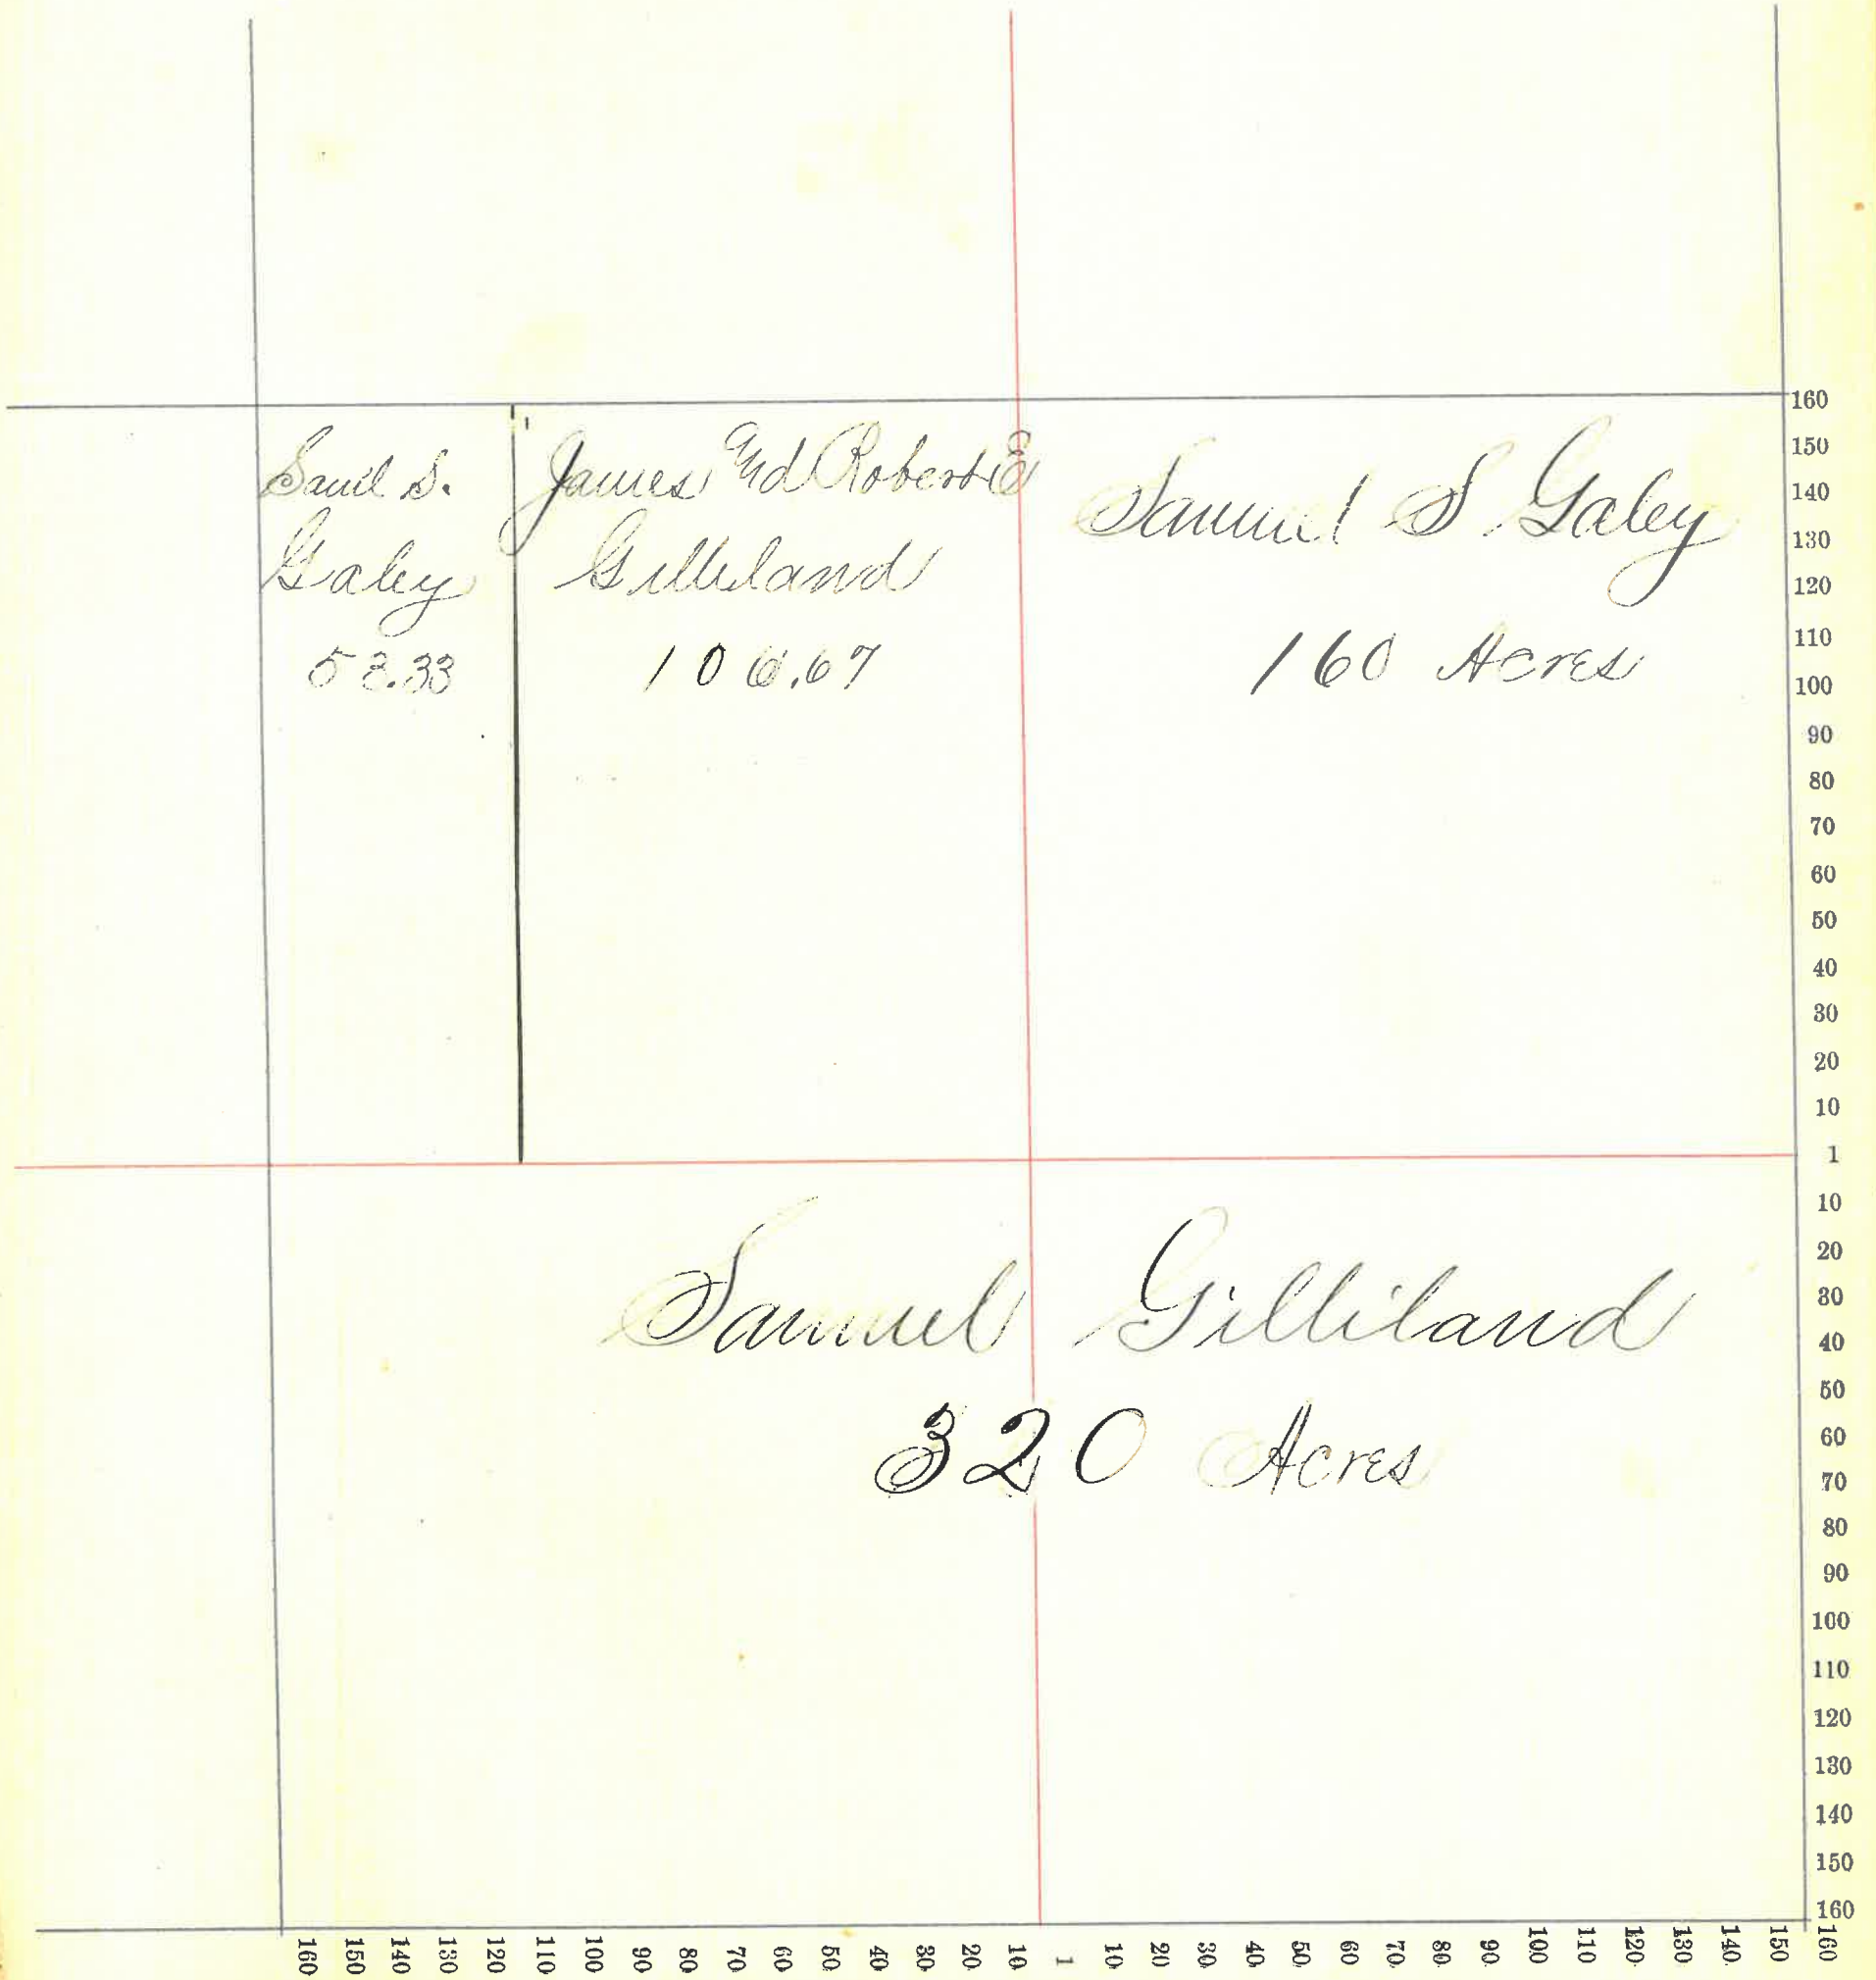 Saml S.
Galey
53.33
James and Robert E
Gilliland
106.67
Samuel S Galey
160 Acres
Samuel Gilliland
320 Acres
160
150
140
130
120
110
100
90
80
70
60
50
40
30
20
10
1
10
20
30
40
50
60
70
80
90
100
110
120
130
140
150
160
160 150 140 130 120 110 100 90 80 70 60 50 40 30 20 10 1 10 20 30 40 50 60 70 80 90 100 110 120 130 140 150 160